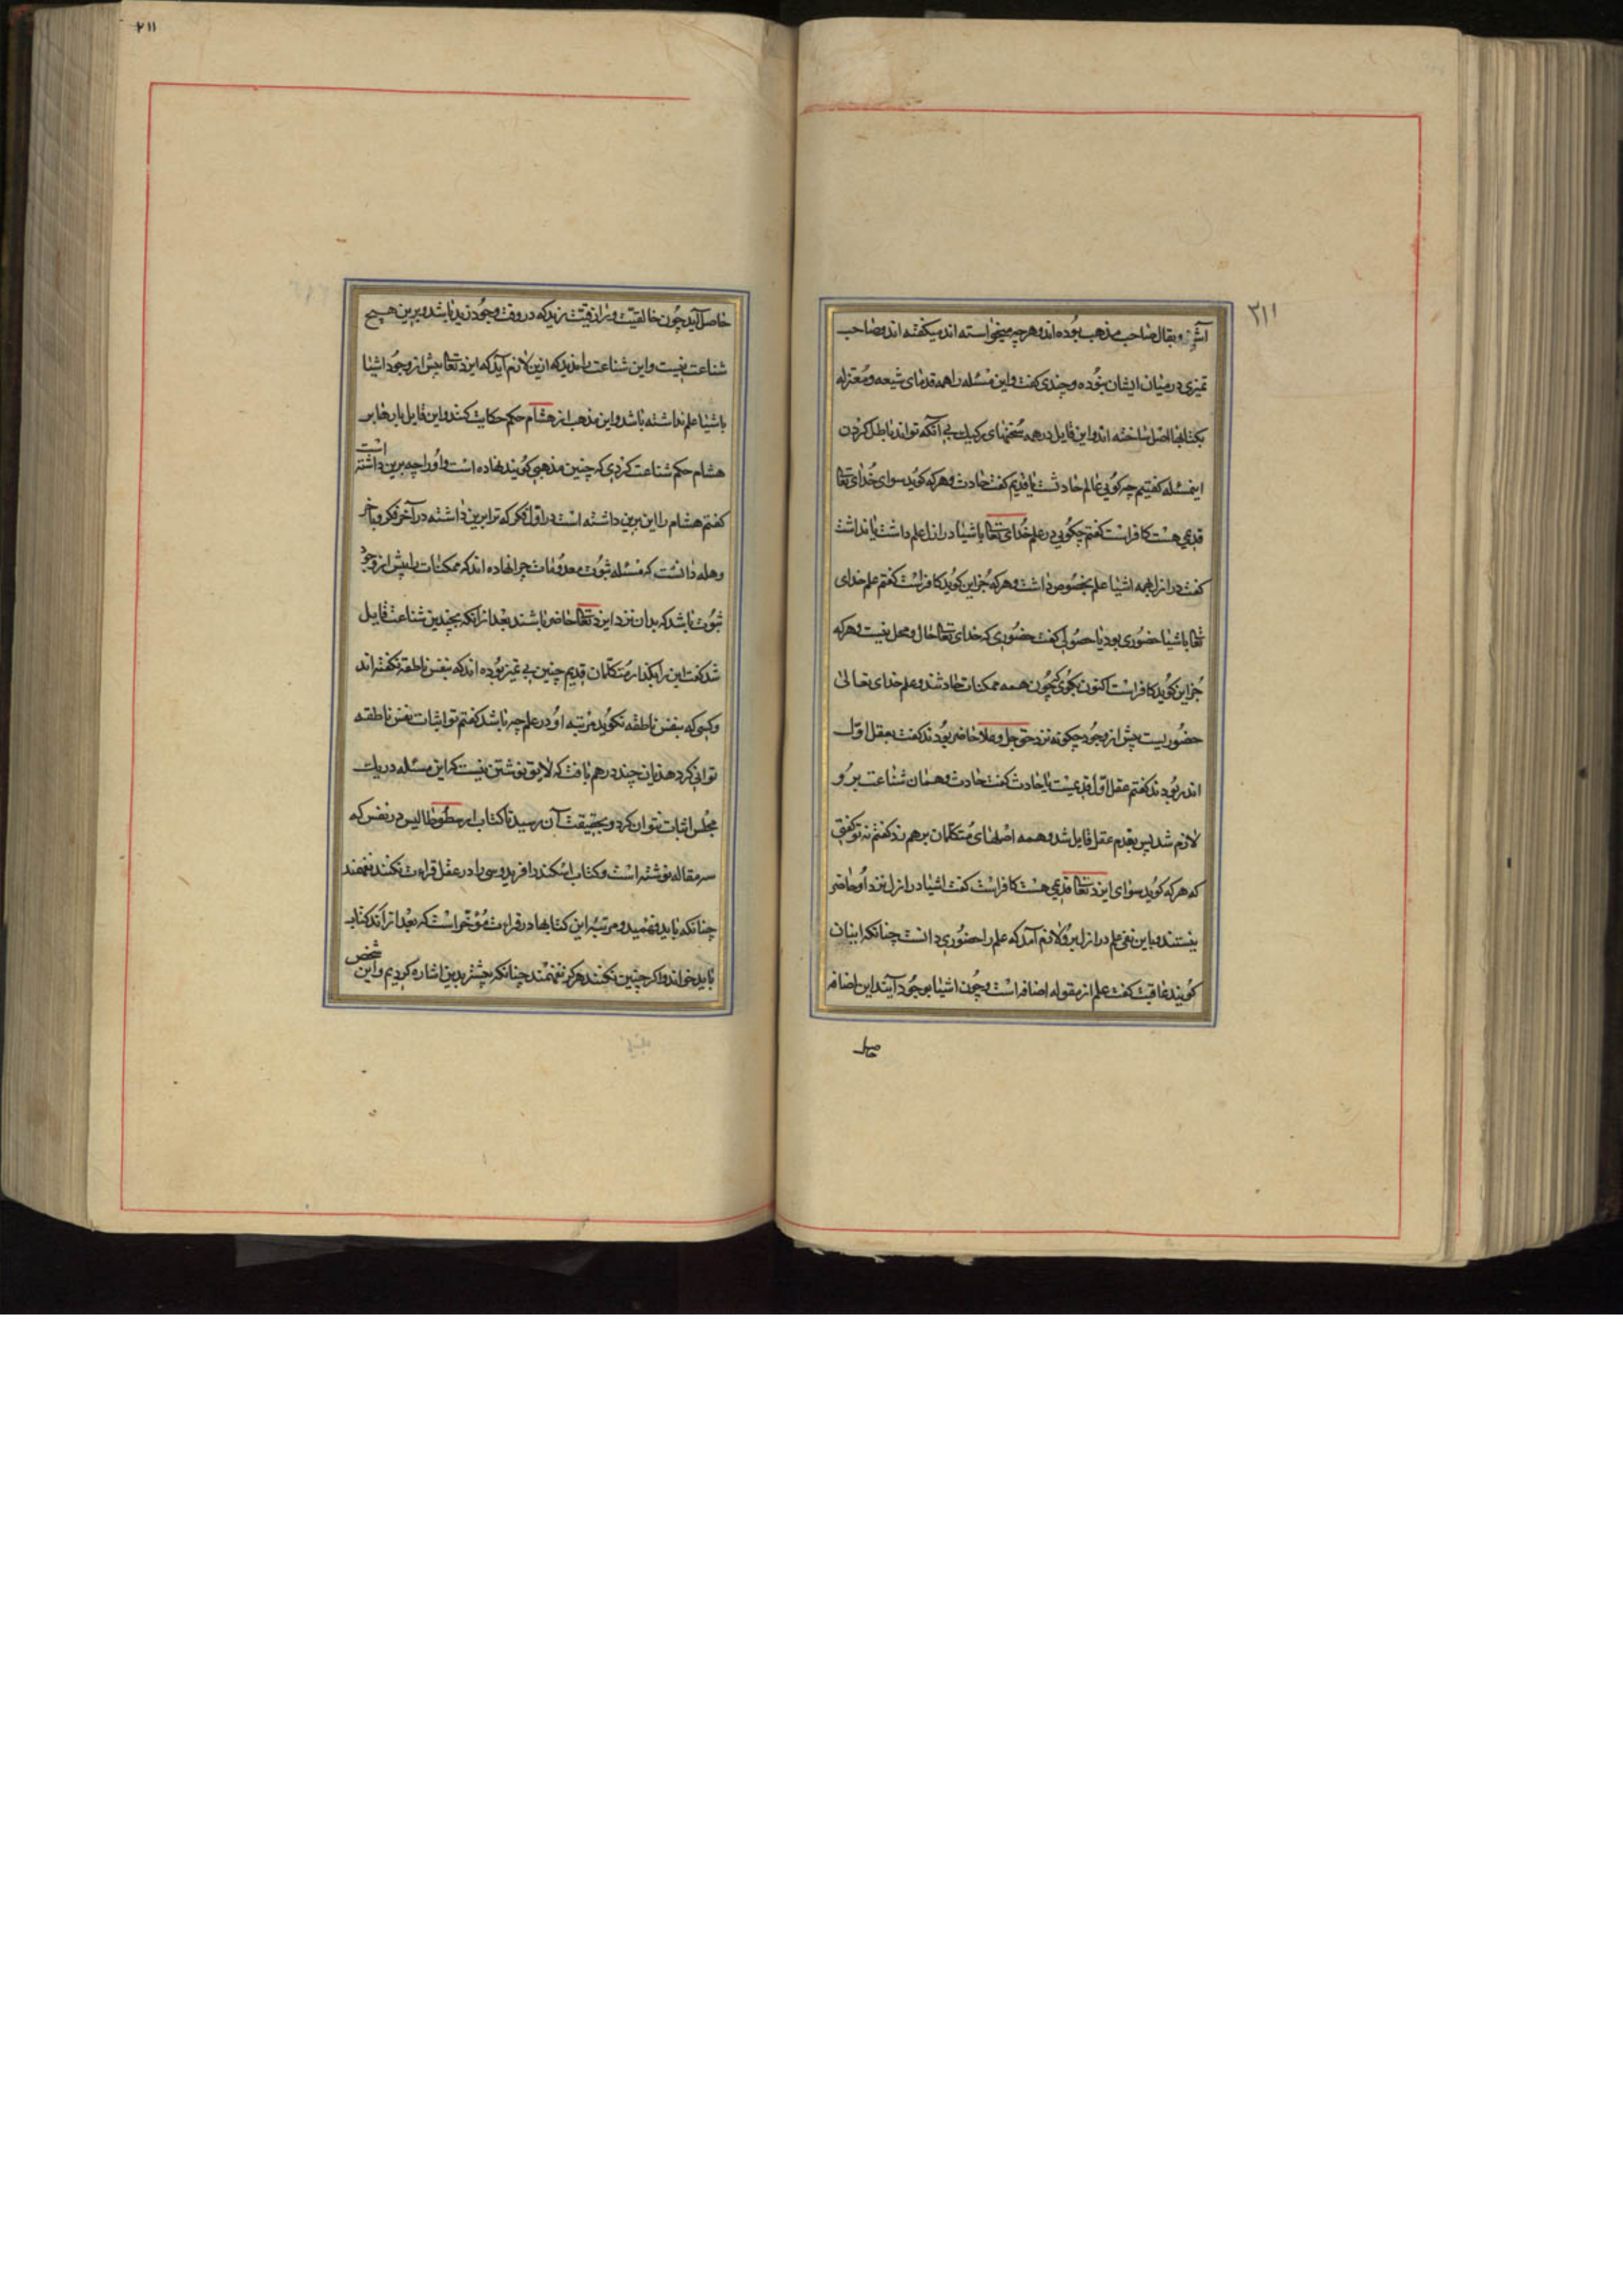 ۳۱۱
آشپز و بقال صاحب مذهب بوده اند و هرچه میخواسته اند میکفته اند و صاحب
تمیزی در میان ایشان نبوده و چندی کفت و این مسئله را همه قدمای شیعه و معتزله
بکتابها اصل ساخته اند و این قایل در همه سخنهای رکیک بی آنکه تواند باطل کردن
اینمسئله کفتیم چه کویی عالم حادثست یا قدیم کفت حادث و هرکه کوید سوای خدای تعا
قدیمی هست کافراست کفتم چکویی در علم خدای تعا باشیا در ازل علم داشت یا نداشت
کفت در ازل بهمه اشیا علم بخصوص داشت و هرکه جزاین کوید کافراست کفتم علم خدای
تعا باشیا حضوری بود یا حصولی کفت حضوری که خدای تعا حال و محل نیست و هرکه
جزاین کوید کافراست اکنون بکوی که چون همه ممکنات حادثند و علم خدای تعالی
حضوریست پیش از وجود چکونه نزد حق جل و علا حاضر بودند کفت بعقل اول
اندر بودند کفتم عقل اول قدیمست یا حادث کفت حادث و همان شناعت برو
لازم شد پس بقدم عقل قایل شد و همه اصلهای متکلمان برهم زد کفتم نه تو کفتی
که هرکه کوید سوای ایزد تعا قدیمی هست کافراست کفت اشیا در ازل نزد او حاضر
نیستند و باین نفی علم در ازل برو لازم آمد که علم را حضوری دانست چنانکه اینان
کویند عاقبت کفت علم از مقوله اضافه است و چون اشیا بوجود آیند این اضافه
حاصل
۲۱۱
حاصل آید چون خالقیت و رازقیت زید که در وقت وجود زید باشد و برین هیچ
شناعت نیست و این شناعت را ندید که ازین لازم آید که ایزد تعا پیش از وجود اشیا
باشیا علم نداشته باشد و این مذهب از هشام حکم حکایت کنند و این قایل بارها بر
هشام حکم شناعت کردی که چنین مذهبی کویند نهاده است و او را چه برین داشته است
کفتم هشام را این برین داشته است در اول فکر که ترا برین داشته در آخر فکر و باخر
وهله دانست که مسئله ثبوت معدومات چرا نهاده اند که ممکنات را پیش از وجود
ثبوت باشد که بدان نزد ایزد تعا حاضر باشند بعد از آنکه بچندین شناعت قایل
شد کفت این را بکذار متکلمان قدیم چنین بی تمیز بوده اند که بنفس ناطقه نکفته اند
و کسی که بنفس ناطقه نکوید مرتبه او در علم چه باشد کفتم تو اثبات نفس ناطقه
توانی کرد هذیان چند درهم بافت که لایق نوشتن نیست که این مسئله در یک
مجلس اثبات نتوان کرد و بحقیقت آن نرسید تا کتاب ارسطوطالیس در نفس که
سه مقاله نوشته است و کتاب اسکندر افریدوسی را در عقل قراءت نکنند نفهمند
چنانکه باید فهمید و مرتبه این کتابها در قراءت مؤخراست که بعد از اند کتاب
باید خواند و اکر چنین نکنند هرکز نفهمند چنانکه پیشتر بدین اشاره کردیم و این شخص